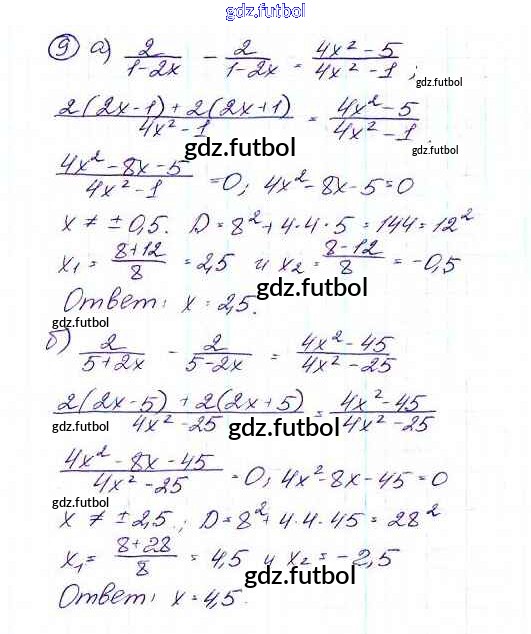 gdz.futbol
9 а) 2/(1-2x) - 2/(1-2x) = (4x² - 5)/(4x² - 1);
gdz.futbol
(2(2x-1) + 2(2x+1))/(4x² - 1) = (4x² - 5)/(4x² - 1)
gdz.futbol gdz.futbol
(4x² - 8x - 5)/(4x² - 1) = 0; 4x² - 8x - 5 = 0
x ≠ ± 0,5. D = 8² + 4·4·5 = 144 = 12²
x₁ = (8+12)/8 = 2,5 и x₂ = (8-12)/8 = -0,5
gdz.futbol
Ответ: x = 2,5.
gdz.futbol
б) 2/(5+2x) - 2/(5-2x) = (4x² - 45)/(4x² - 25)
(2(2x-5) + 2(2x+5))/(4x² - 25) = (4x² - 45)/(4x² - 25)
gdz.futbol gdz.futbol
(4x² - 8x - 45)/(4x² - 25) = 0; 4x² - 8x - 45 = 0
gdz.futbol
x ≠ ± 2,5; D = 8² + 4·4·45 = 28²
x₁ = (8+28)/8 = 4,5 и x₂ = -2,5
gdz.futbol
Ответ: x = 4,5.
gdz.futbol